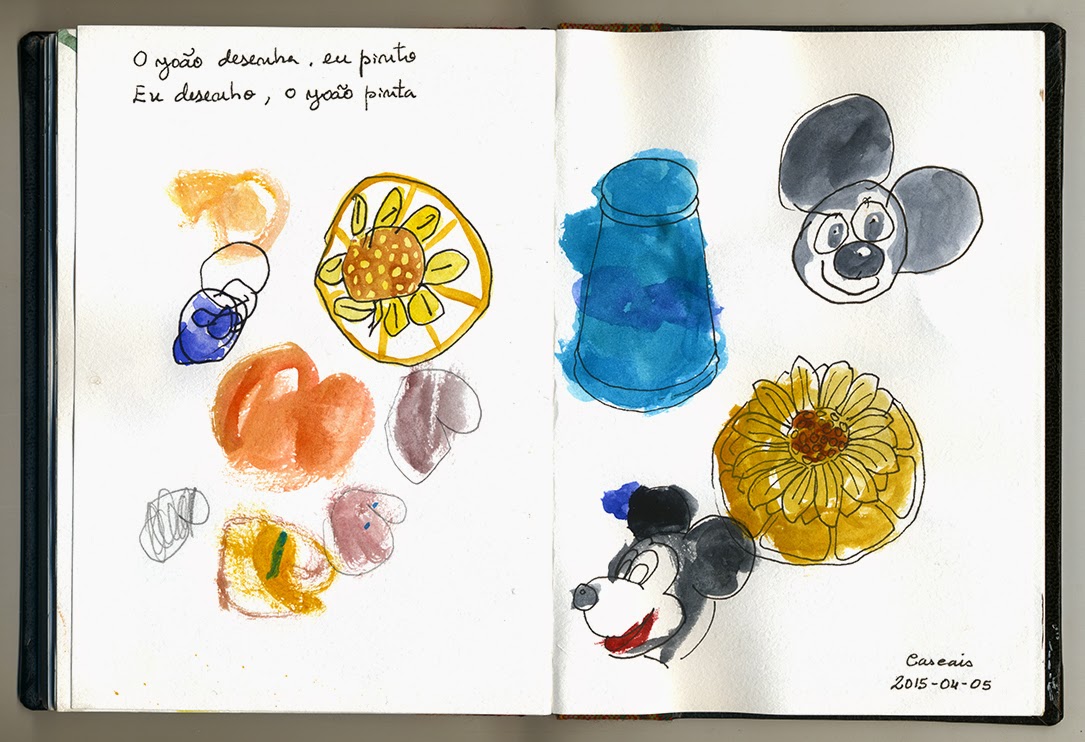 O João desenha, eu pinto
Eu desenho, o João pinta
Cascais
2015-04-05